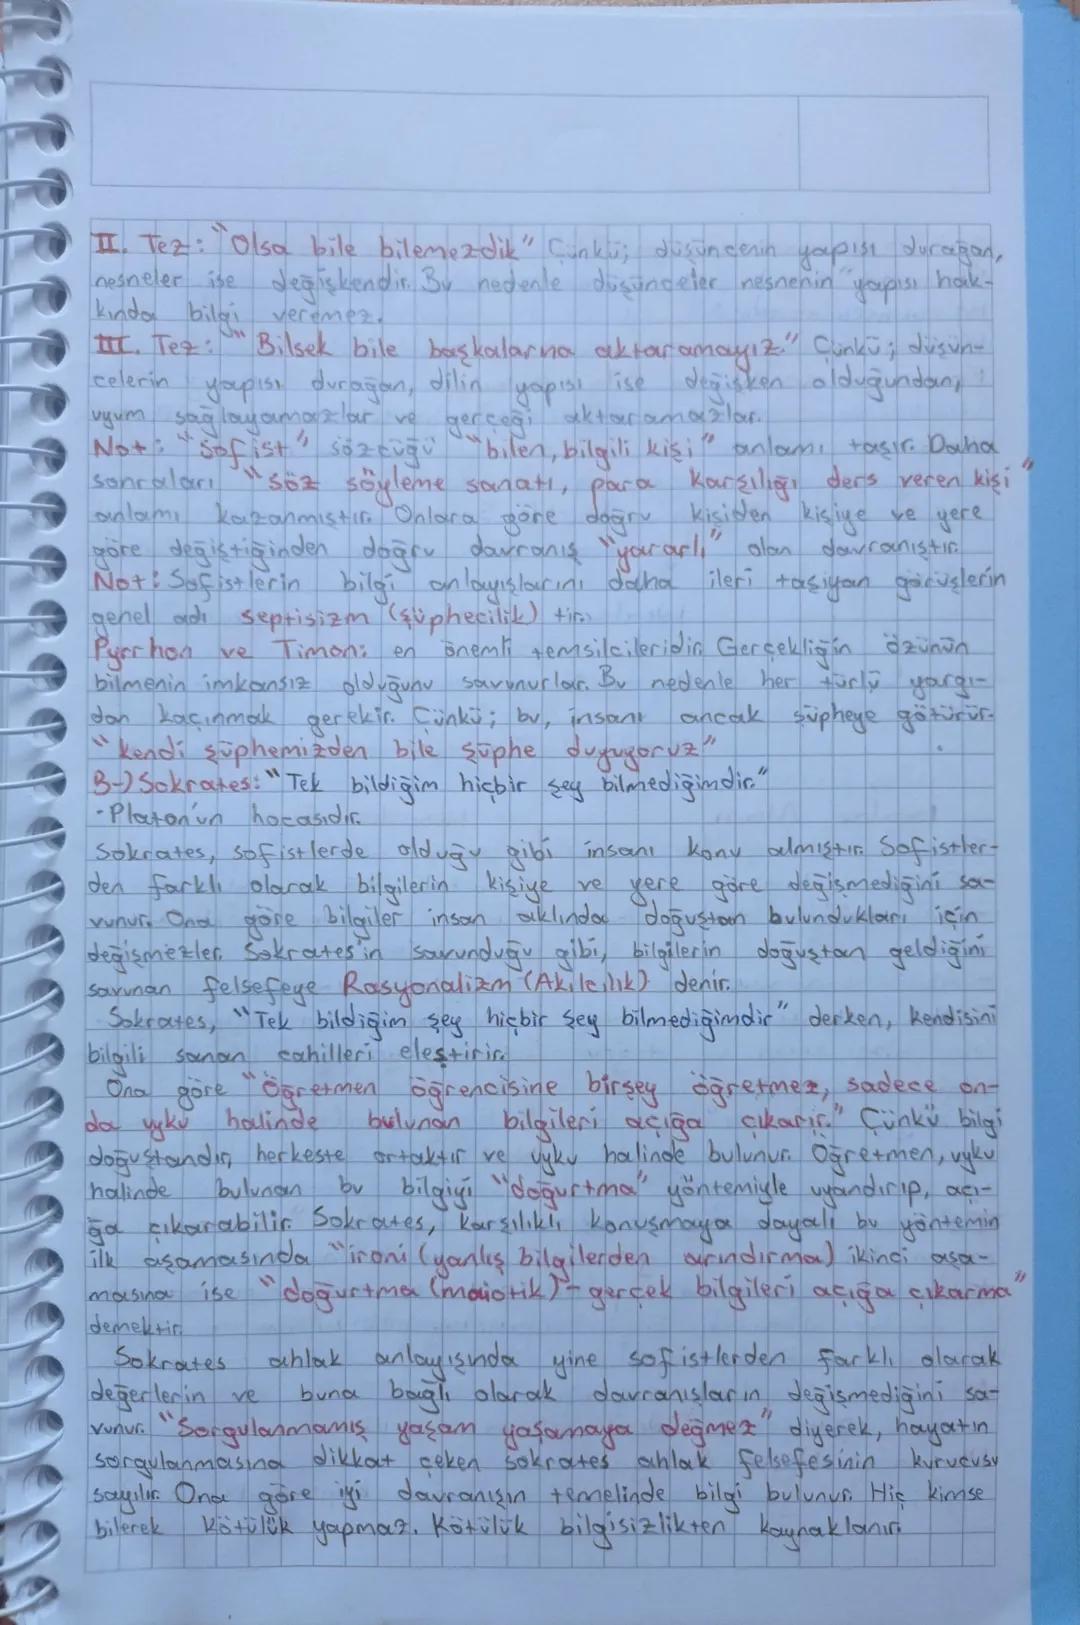 II. Tez: "Olsa bile bilemezdik" Çünkü; düşüncenin yapısı durağan,
nesneler ise değişkendir. Bu nedenle düşünceler nesnenin yapısı hak-
kında bilgi veremez.
III. Tez: "Bilsek bile başkalarına aktaramayız." Çünkü; düşün-
celerin yapısı durağan, dilin yapısı ise değişken olduğundan,
uyum sağlayamazlar ve gerçeği aktaramazlar.
Not: "Sofist" sözcüğü "bilen, bilgili kişi" anlamı taşır. Daha
sonraları "söz söyleme sanatı, para karşılığı ders veren kişi"
anlamı kazanmıştır. Onlara göre doğru kişiden kişiye ve yere
göre değiştiğinden doğru davranış "yararlı" olan davranıştır.
Not: Sofistlerin bilgi anlayışlarını daha ileri taşıyan görüşlerin
genel adı septisizm (şüphecilik) tir.
Pyrrhon ve Timon: en önemli temsilcileridir. Gerçekliğin özünün
bilmenin imkansız olduğunu savunurlar. Bu nedenle her türlü yargı-
dan kaçınmak gerekir. Çünkü; bu, insanı ancak şüpheye götürür.
"kendi şüphemizden bile şüphe duyuyoruz"
B-) Sokrates: "Tek bildiğim hiçbir şey bilmediğimdir."
· Platon'un hocasıdır.
Sokrates, sofistlerde olduğu gibi insanı konu almıştır. Sofistler-
den farklı olarak bilgilerin kişiye ve yere göre değişmediğini sa-
vunur. Ona göre bilgiler insan aklında doğuştan bulundukları için
değişmezler. Sokrates'in savunduğu gibi, bilgilerin doğuştan geldiğini
savunan felsefeye Rasyonalizm (Akılcılık) denir.
Sokrates, "Tek bildiğim şey hiçbir şey bilmediğimdir" derken, kendisini
bilgili sanan cahilleri eleştirir.
Ona göre "Öğretmen öğrencisine birşey öğretmez, sadece on-
da uyku halinde bulunan bilgileri açığa çıkarır." Çünkü bilgi
doğuştandır, herkeste ortaktır ve uyku halinde bulunur. Öğretmen, uyku
halinde bulunan bu bilgiyi "doğurtma" yöntemiyle uyandırıp, açı-
ğa çıkarabilir. Sokrates, karşılıklı konuşmaya dayalı bu yöntemin
ilk aşamasında "ironi (yanlış bilgilerden arındırma) ikinci aşa-
masına ise "doğurtma (maiotik) - gerçek bilgileri açığa çıkarma"
demektir.
Sokrates ahlak anlayışında yine sofistlerden farklı olarak
değerlerin ve buna bağlı olarak davranışların değişmediğini sa-
vunur. "Sorgulanmamış yaşam yaşamaya değmez" diyerek, hayatın
sorgulanmasına dikkat çeken sokrates ahlak felsefesinin kurucusu
sayılır. Ona göre iyi davranışın temelinde bilgi bulunur. Hiç kimse
bilerek kötülük yapmaz. Kötülük bilgisizlikten kaynaklanır.